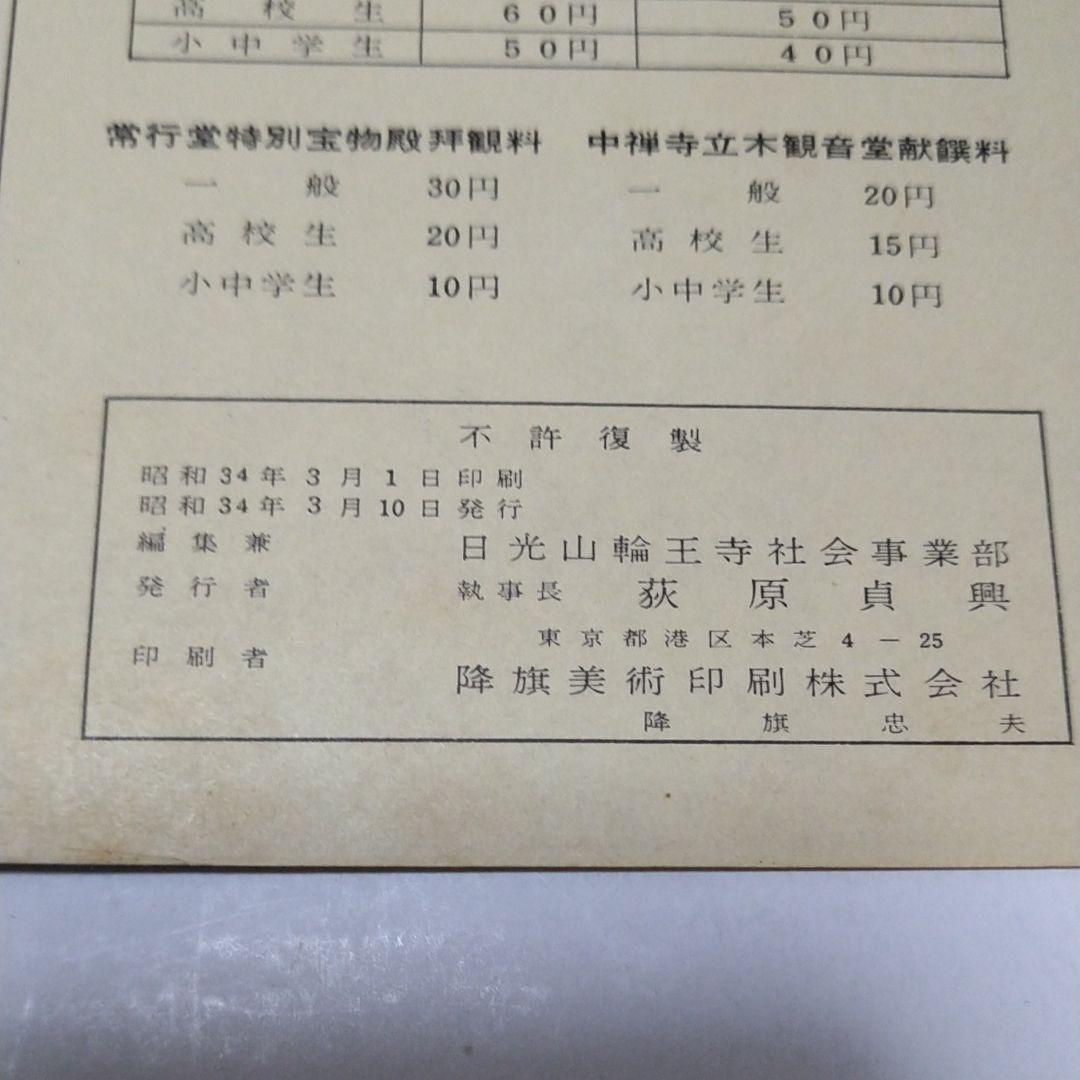 高校生 60円 50円
小中学生 50円 40円
常行堂特別宝物殿拝観料 中禅寺立木観音堂献饌料
一般 30円 一般 20円
高校生 20円 高校生 15円
小中学生 10円 小中学生 10円
不許復製
昭和34年3月1日印刷
昭和34年3月10日発行
編集兼 日光山輪王寺社会事業部
発行者 執事長 荻原貞興
東京都港区本芝4-25
印刷者 降旗美術印刷株式会社
降旗忠夫